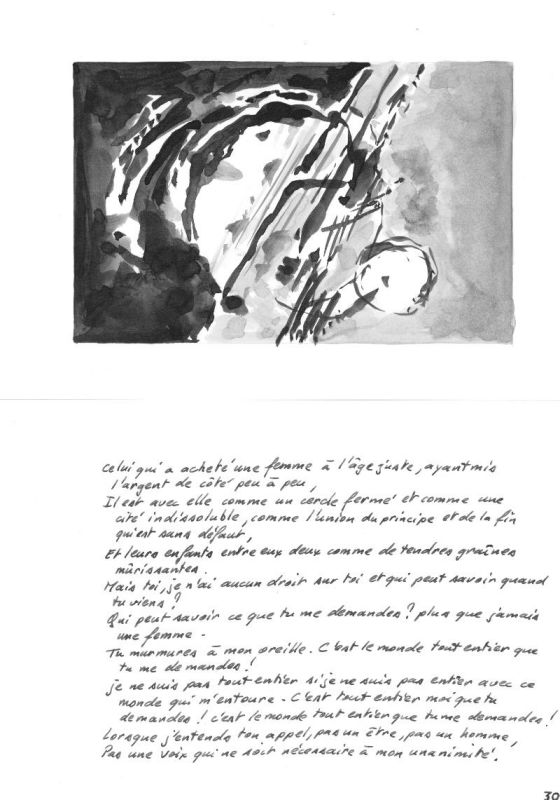 Celui qui a acheté une femme à l'âge juste, ayant mis
l'argent de côté peu à peu,
Il est avec elle comme un cercle fermé et comme une
cité indissoluble, comme l'union du principe et de la fin
qui est sans défaut,
Et leurs enfants entre eux deux comme de tendres graines
mûrissantes.
Mais toi, je n'ai aucun droit sur toi et qui peut savoir quand
tu viens ?
Qui peut savoir ce que tu me demandes ? plus que jamais
une femme -
Tu murmures à mon oreille. C'est le monde tout entier que
tu me demandes !
je ne suis pas tout entier si je ne suis pas entier avec ce
monde qui m'entoure - C'est tout entier moi que tu
demandes ! c'est le monde tout entier que tu me demandes !
Lorsque j'entends ton appel, pas un être, pas un homme,
Pas une voix qui ne soit nécessaire à mon unanimité.
30